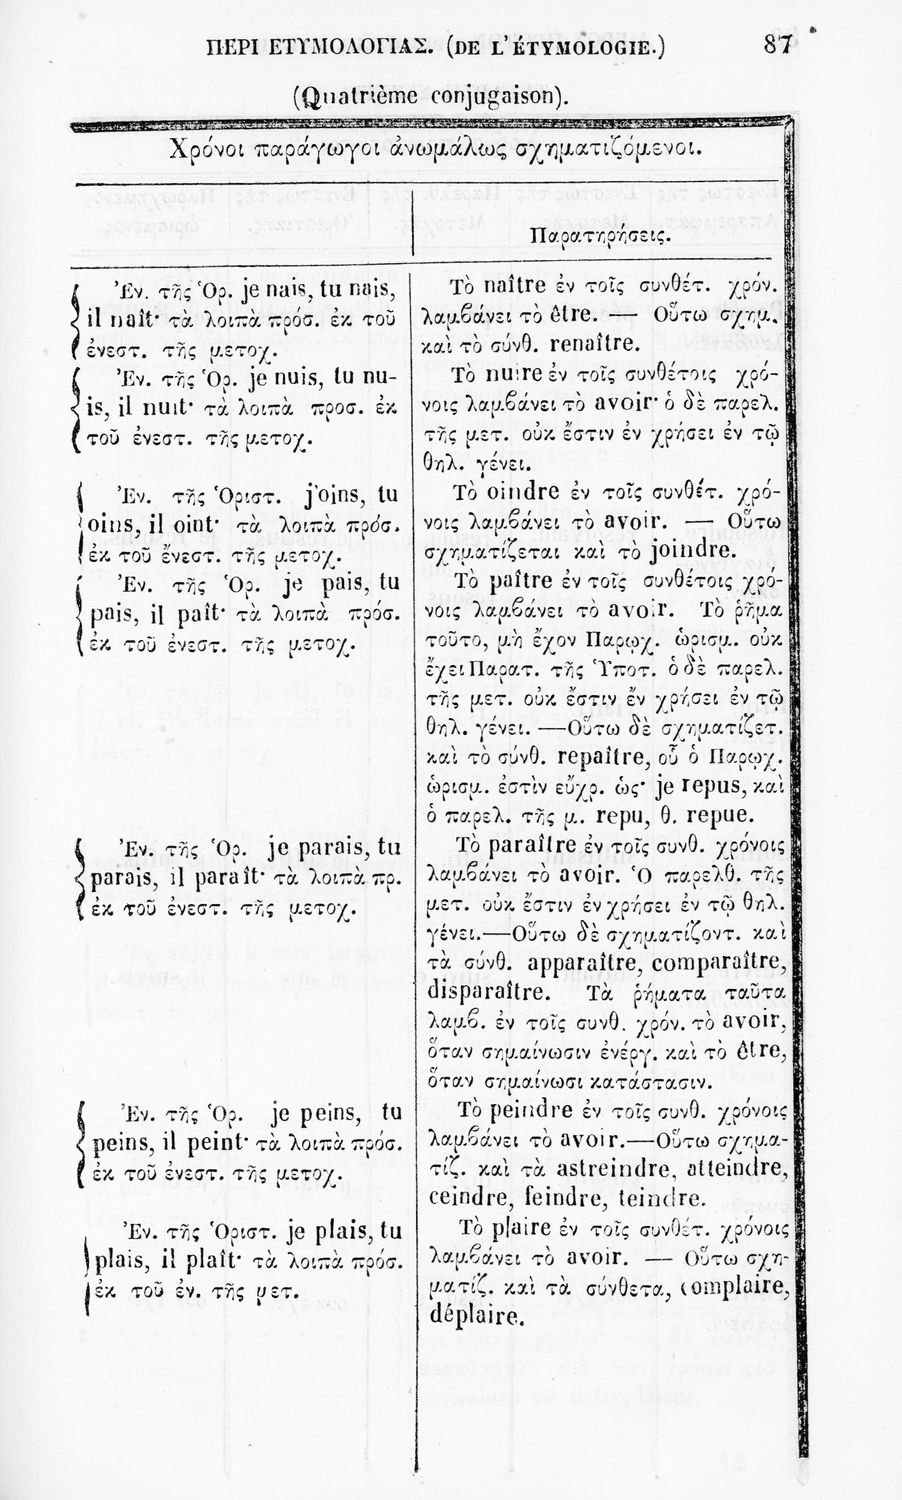 ΠΕΡΙ ΕΤΥΜΟΛΟΓΙΑΣ. (DE L'ÉTYMOLOGIE.) 87
(Quatrième conjugaison).
Χρόνοι παράγωγοι ἀνωμάλως σχηματιζόμενοι.
Ἐν. τῆς Ὁρ. je nais, tu nais,
il naît· τὰ λοιπὰ πρόσ. ἐκ τοῦ
ἐνεστ. τῆς μετοχ.
Ἐν. τῆς Ὁρ. je nuis, tu nu-
is, il nuit· τὰ λοιπὰ προσ. ἐκ
τοῦ ἐνεστ. τῆς μετοχ.
Ἐν. τῆς Ὁριστ. j'oins, tu
oins, il oint· τὰ λοιπὰ πρόσ.
ἐκ τοῦ ἔνεστ. τῆς μετοχ.
Ἐν. τῆς Ὁρ. je pais, tu
pais, il paît· τὰ λοιπὰ πρόσ.
ἐκ τοῦ ἐνεστ. τῆς μετοχ.
Ἐν. τῆς Ὁρ. je parais, tu
parais, il paraît· τὰ λοιπὰ πρ.
ἐκ τοῦ ἐνεστ. τῆς μετοχ.
Ἐν. τῆς Ὁρ. je peins, tu
peins, il peint· τὰ λοιπὰ πρόσ.
ἐκ τοῦ ἐνεστ. τῆς μετοχ.
Ἐν. τῆς Ὁριστ. je plais, tu
plais, il plaît· τὰ λοιπὰ πρόσ.
ἐκ τοῦ ἐν. τῆς μετ.
Παρατηρήσεις.
Τὸ naître ἐν τοῖς συνθέτ. χρόν.
λαμβάνει τὸ être. — Οὕτω σχημ.
καὶ τὸ σύνθ. renaître.
Τὸ nuire ἐν τοῖς συνθέτοις χρό-
νοις λαμβάνει τὸ avoir· ὁ δὲ παρελ.
τῆς μετ. οὐκ ἔστιν ἐν χρήσει ἐν τῷ
θηλ. γένει.
Τὸ oindre ἐν τοῖς συνθέτ. χρό-
νοις λαμβάνει τὸ avoir. — Οὕτω
σχηματίζεται καὶ τὸ joindre.
Τὸ paître ἐν τοῖς συνθέτοις χρο-
νοις λαμβάνει τὸ avoir. Τὸ ῥῆμα
τοῦτο, μὴ ἔχον Παρῳχ. ὡρισμ. οὐκ
ἔχει Παρατ. τῆς Ὑποτ. ὁ δὲ παρελ.
τῆς μετ. οὐκ ἔστιν ἔν χρήσει ἐν τῷ
θηλ. γένει. —Οὕτω δὲ σχηματίζετ.
καὶ τὸ σύνθ. repaître, οὗ ὁ Παρῳχ.
ὡρισμ. ἐστὶν εὔχρ. ὡς· je repus, καὶ
ὁ παρελ. τῆς μ. repu, θ. repue.
Τὸ paraître ἐν τοῖς συνθ. χρόνοις
λαμβάνει τὸ avoir. Ὁ παρελθ. τῆς
μετ. οὐκ ἔστιν ἐν χρήσει ἐν τῷ θηλ.
γένει.—Οὕτω δὲ σχηματίζοντ. καὶ
τὰ σύνθ. apparaître, comparaître,
disparaître. Τὰ ῥήματα ταῦτα
λαμβ. ἐν τοῖς συνθ. χρόν. τὸ avoir,
ὅταν σημαίνωσιν ἐνέργ. καὶ τὸ être,
ὅταν σημαίνωσι κατάστασιν.
Τὸ peindre ἐν τοῖς συνθ. χρόνοις
λαμβάνει τὸ avoir.—Οὕτω σχημα-
τίζ. καὶ τὰ astreindre, atteindre,
ceindre, feindre, teindre.
Τὸ plaire ἐν τοῖς συνθέτ. χρόνοις
λαμβάνει τὸ avoir. — Οὕτω σχη-
ματίζ. καὶ τὰ σύνθετα, complaire,
déplaire.